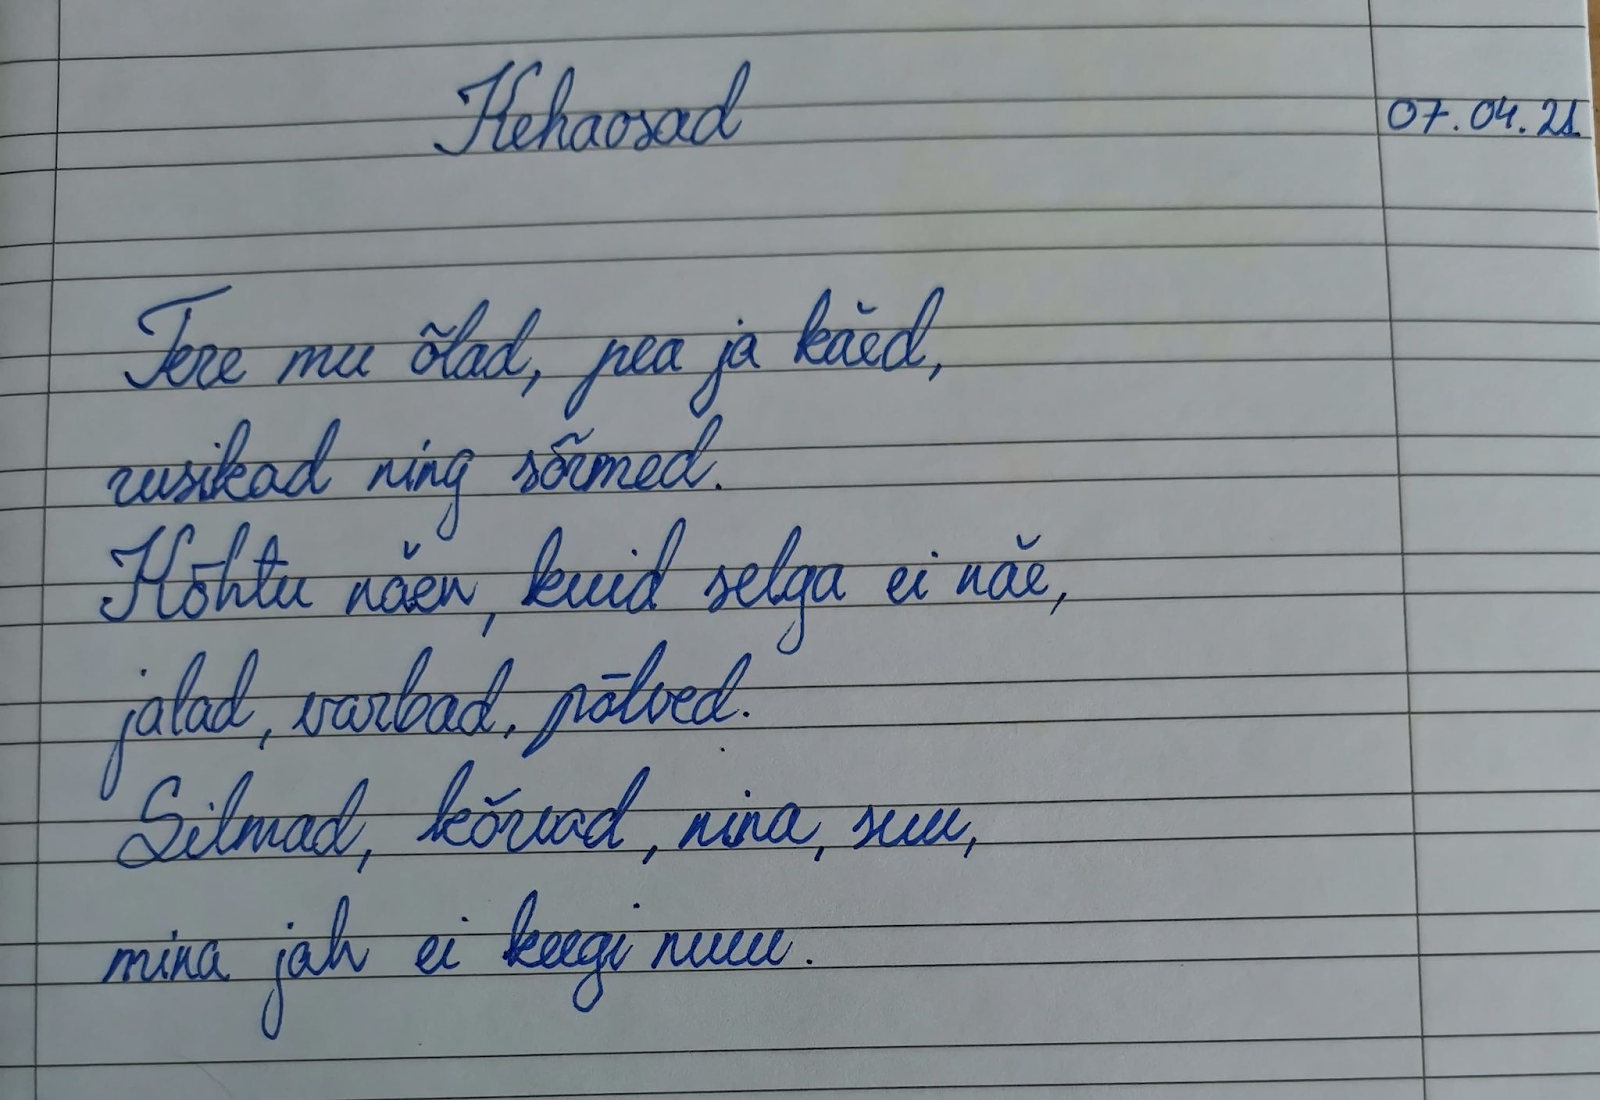 Kehaosad
07.04.21
Tere mu õlad, pea ja käed,
rusikad ning sõrmed.
Kõhtu näen, kuid selga ei näe,
jalad, varbad, põlved.
Silmad, kõrvad, nina, suu,
mina jah ei keegi muu.